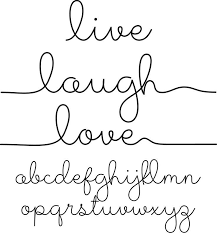 live
laugh
love
abcdefghijklmn
opqrstuvwxyz